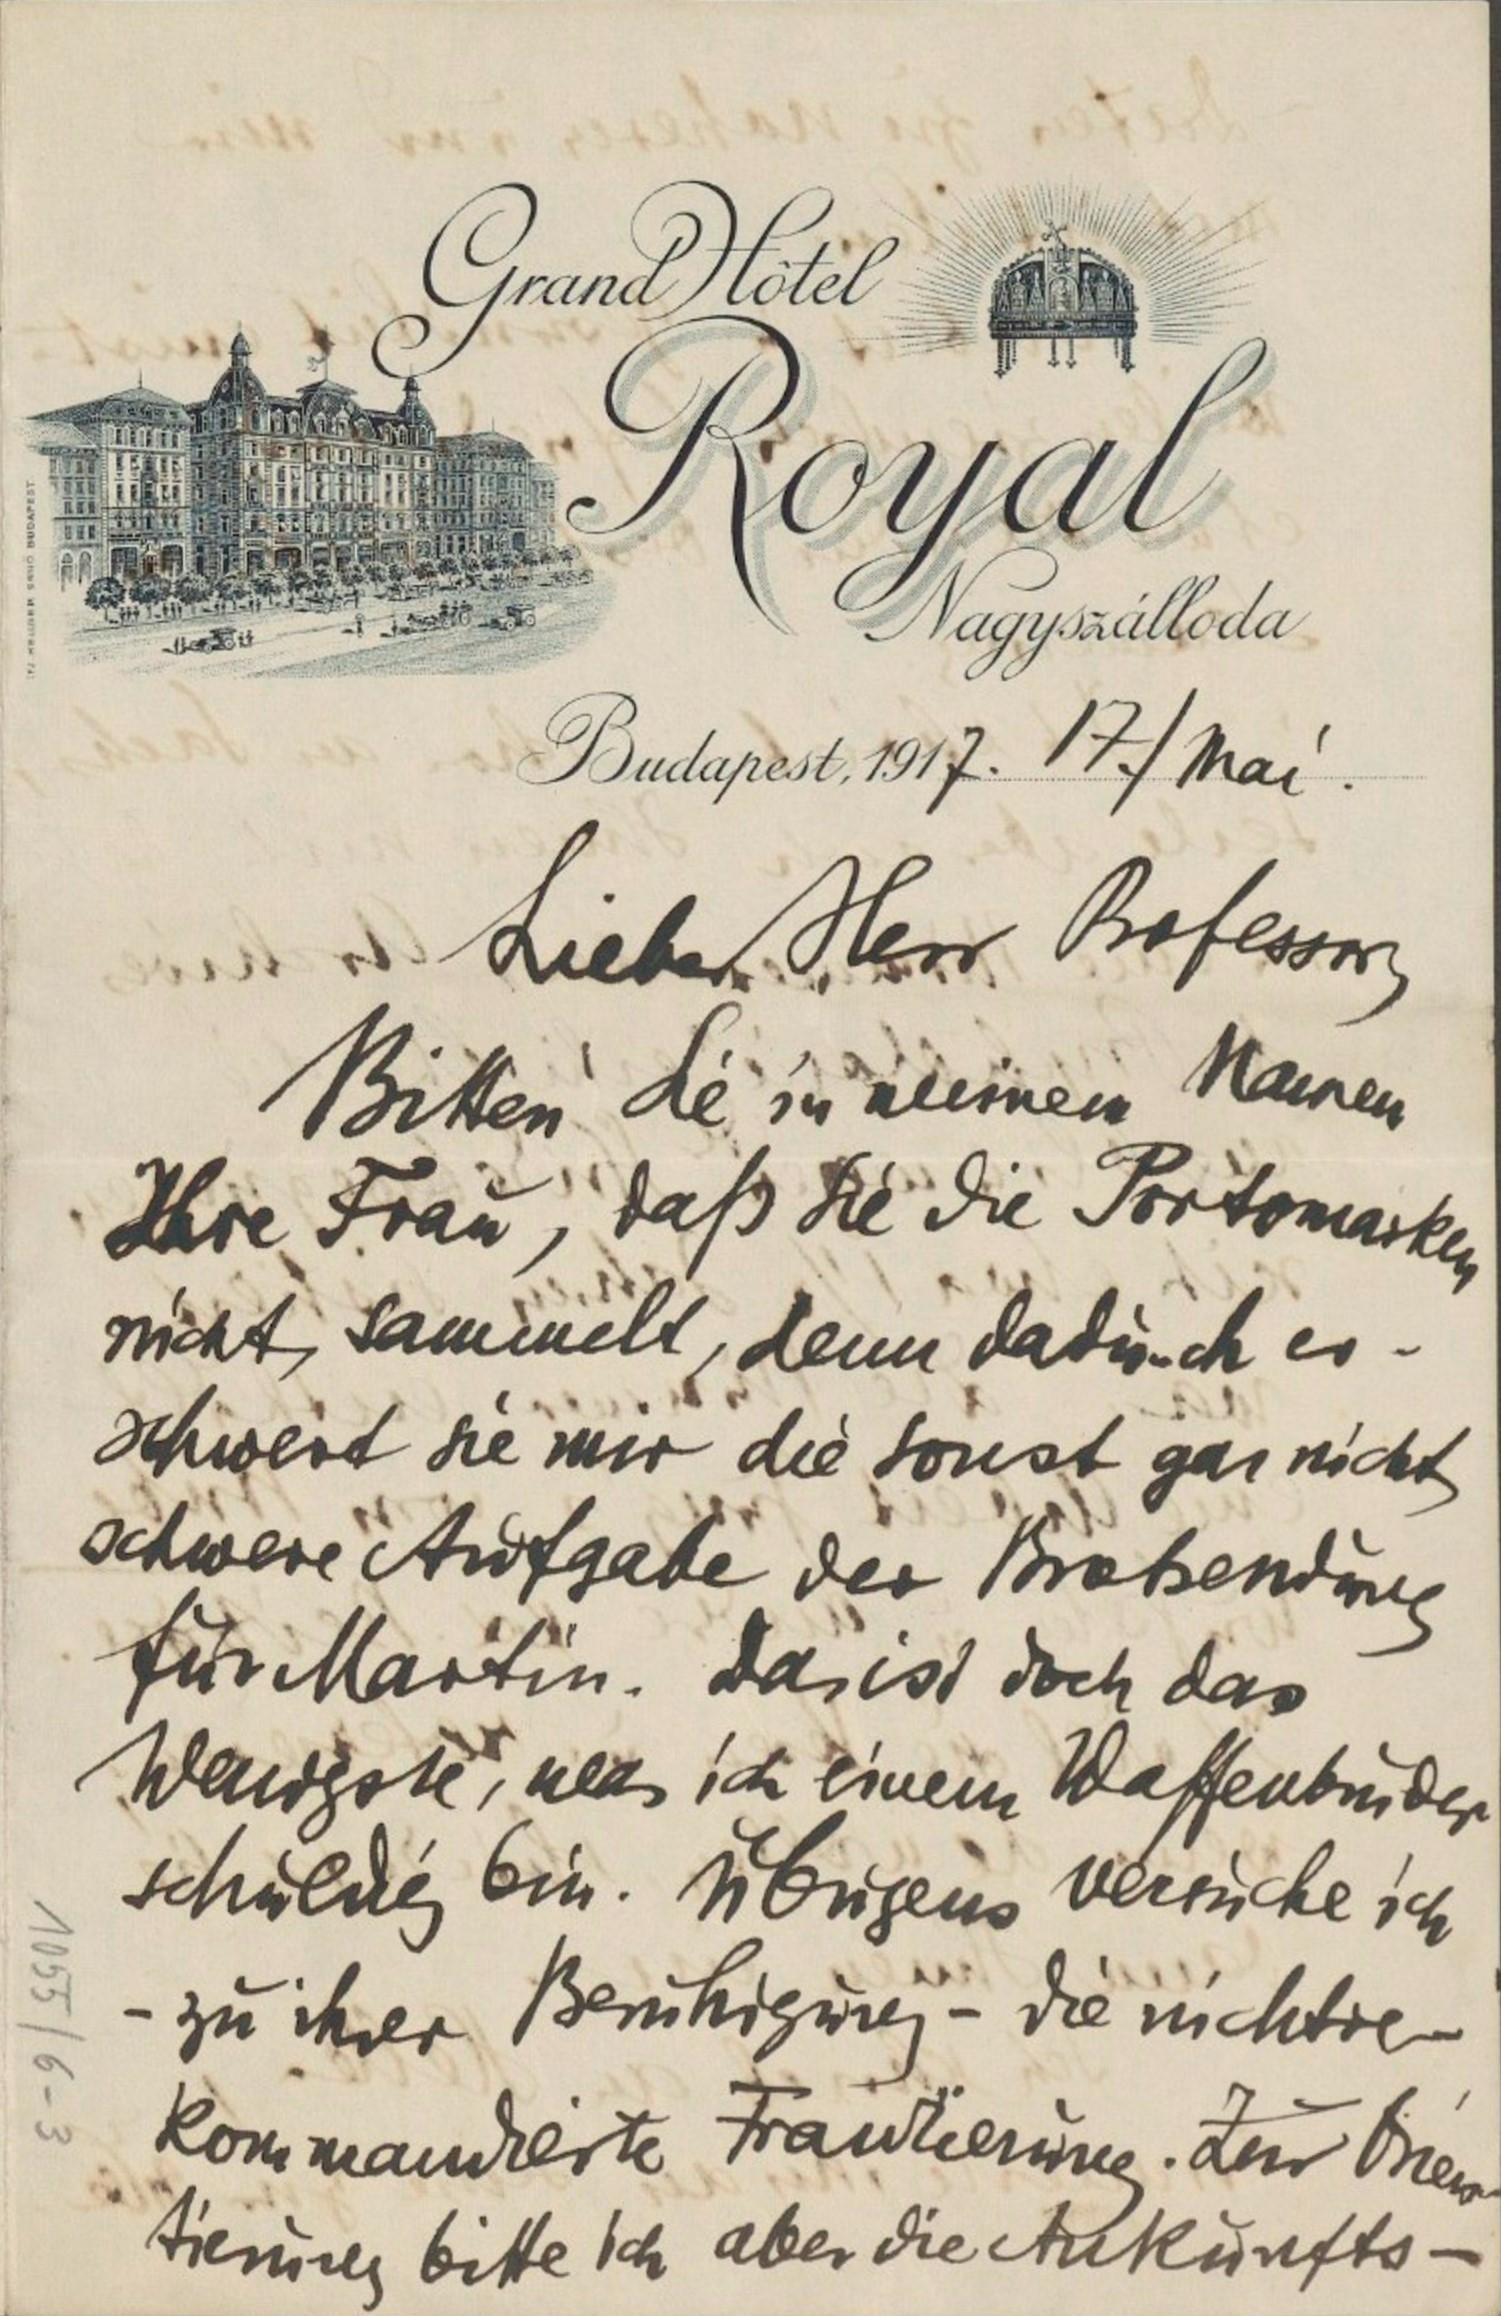 Grand Hôtel
Royal
Nagyszálloda
Budapest, 1917. 17./Mai.
Lieber Herr Professor,
Bitten Sie in meinem Namen
Ihre Frau, daß sie die Portomarken
nicht sammelt, denn dadurch er-
schwert sie mir die sonst gar nicht
schwere Aufgabe der Brotsendung
für Martin. Das ist doch das
Wenigste, was ich einem Waffenbruder
schuldig bin. Übrigens versuche ich
- zu ihrer Beruhigung - die nichtre-
kommandierte Frankierung. Zur Orien-
tierung bitte ich aber die Ankunfts-
1055/6-3